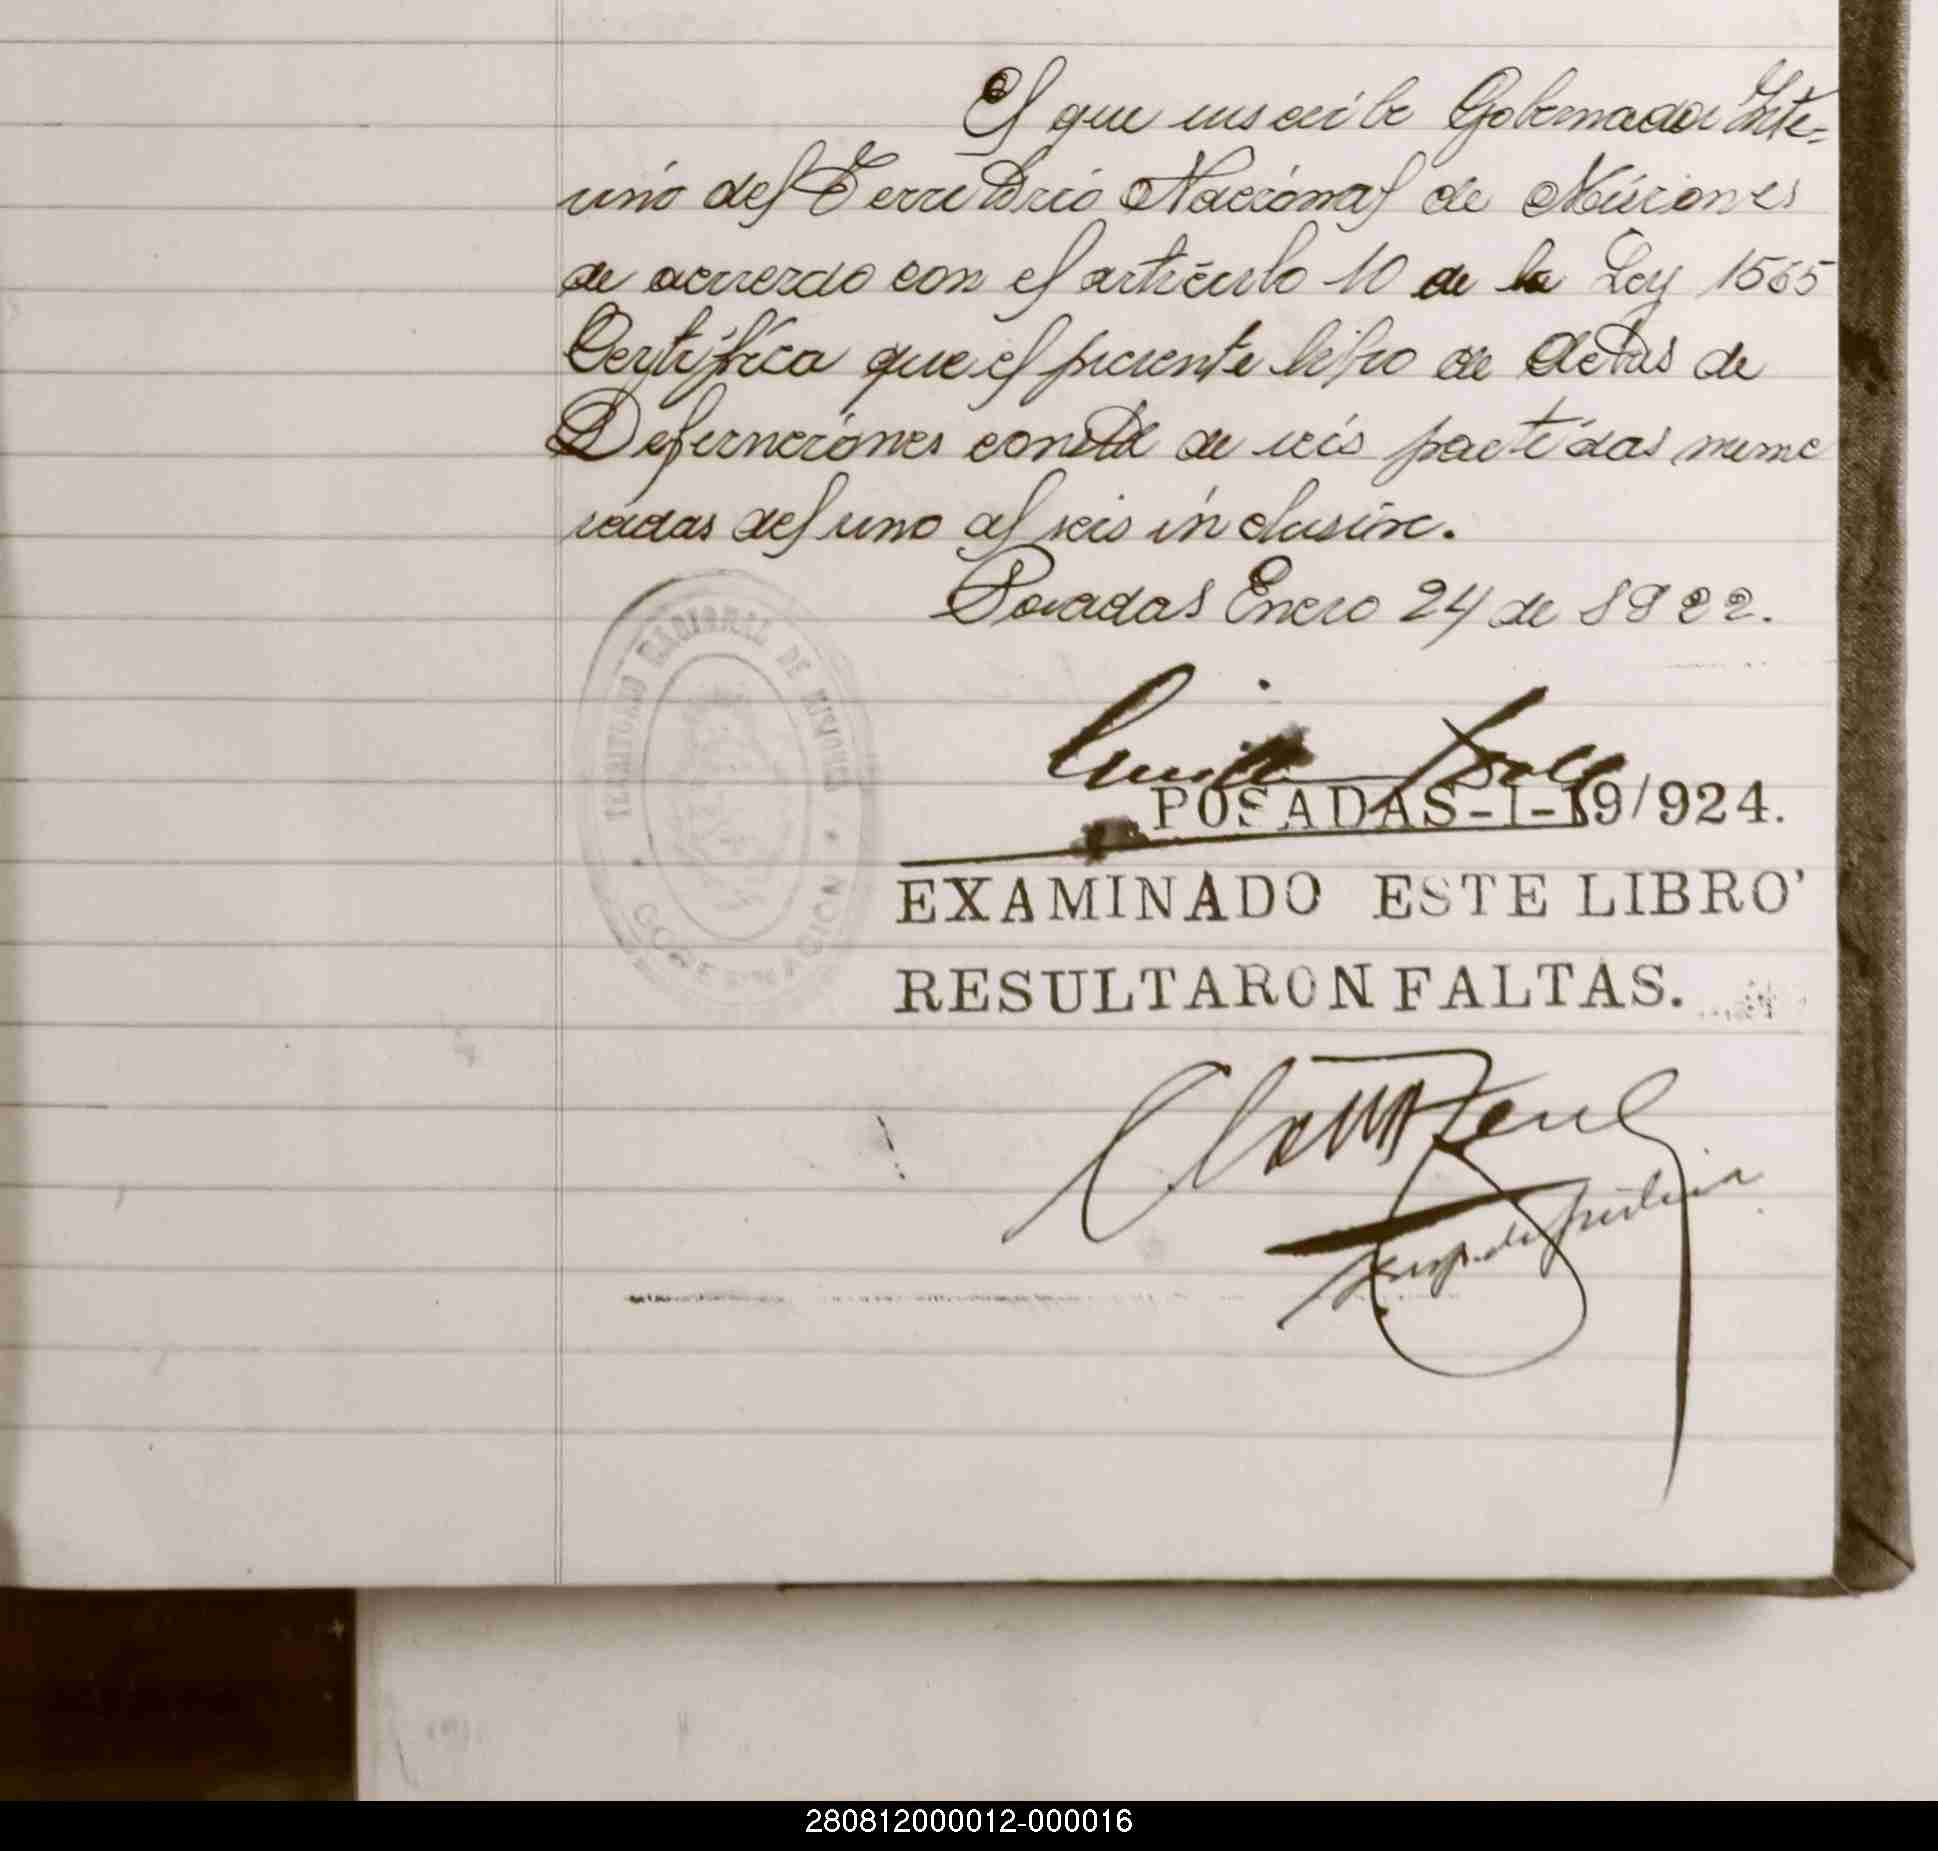 El que suscribe Gobernador Inte-
rino del Territorio Nacional de Misiones
de acuerdo con el artículo 10 de la Ley 1565
Certifica que el presente libro de Actas de
Defunciones consta de seis partidas nume
radas del uno al seis inclusive.
Posadas Enero 24 de 1922.
TERRITORIO NACIONAL DE MISIONES
GOBERNACION
POSADAS-I-19/924.
EXAMINADO ESTE LIBRO
RESULTARON FALTAS.
280812000012-000016